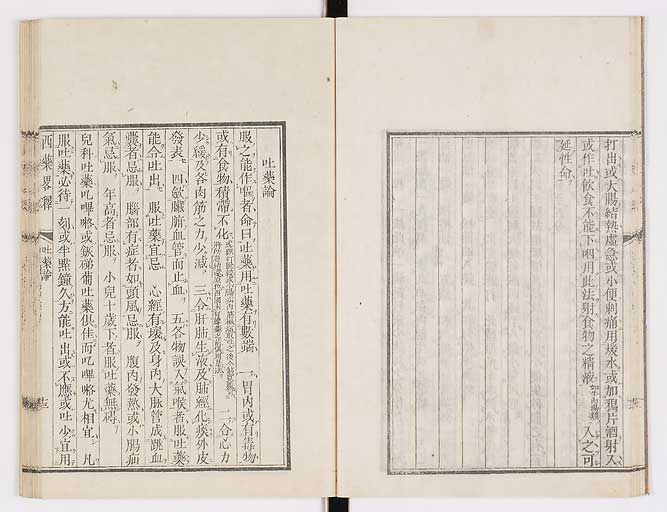 打出或大腸結熱虛急或小便刺痛用暖水或加鴉片酒射入
或作吐飲食不能下咽用此法射食物之精液入之可
延性命
吐藥論
服之能作嘔者命曰吐藥用吐藥有數端 一胃內或有毒物
或有食物積滯不化 二令心力
少緩及各肉筋之力少減 三令肝肺生液及肺經化痰外皮
發表 四歛臟腑血管而止血 五各物誤入氣喉者服吐藥
能令吐出 服吐藥宜忌 心經有壞及身內大脉管成跳血
囊者忌服 腦部有症者如頭風忌服 腹內發熱或小腸疝
氣忌服 年高者忌服 小兒十歲下者服吐藥無碍
兒科吐藥吃嗶咯或銻葡吐藥俱佳而吃嗶咯尤相宜 凡
服吐藥必待一刻或半點鐘久方能吐出或不應或吐少宜用
西藥畧釋
吐藥論